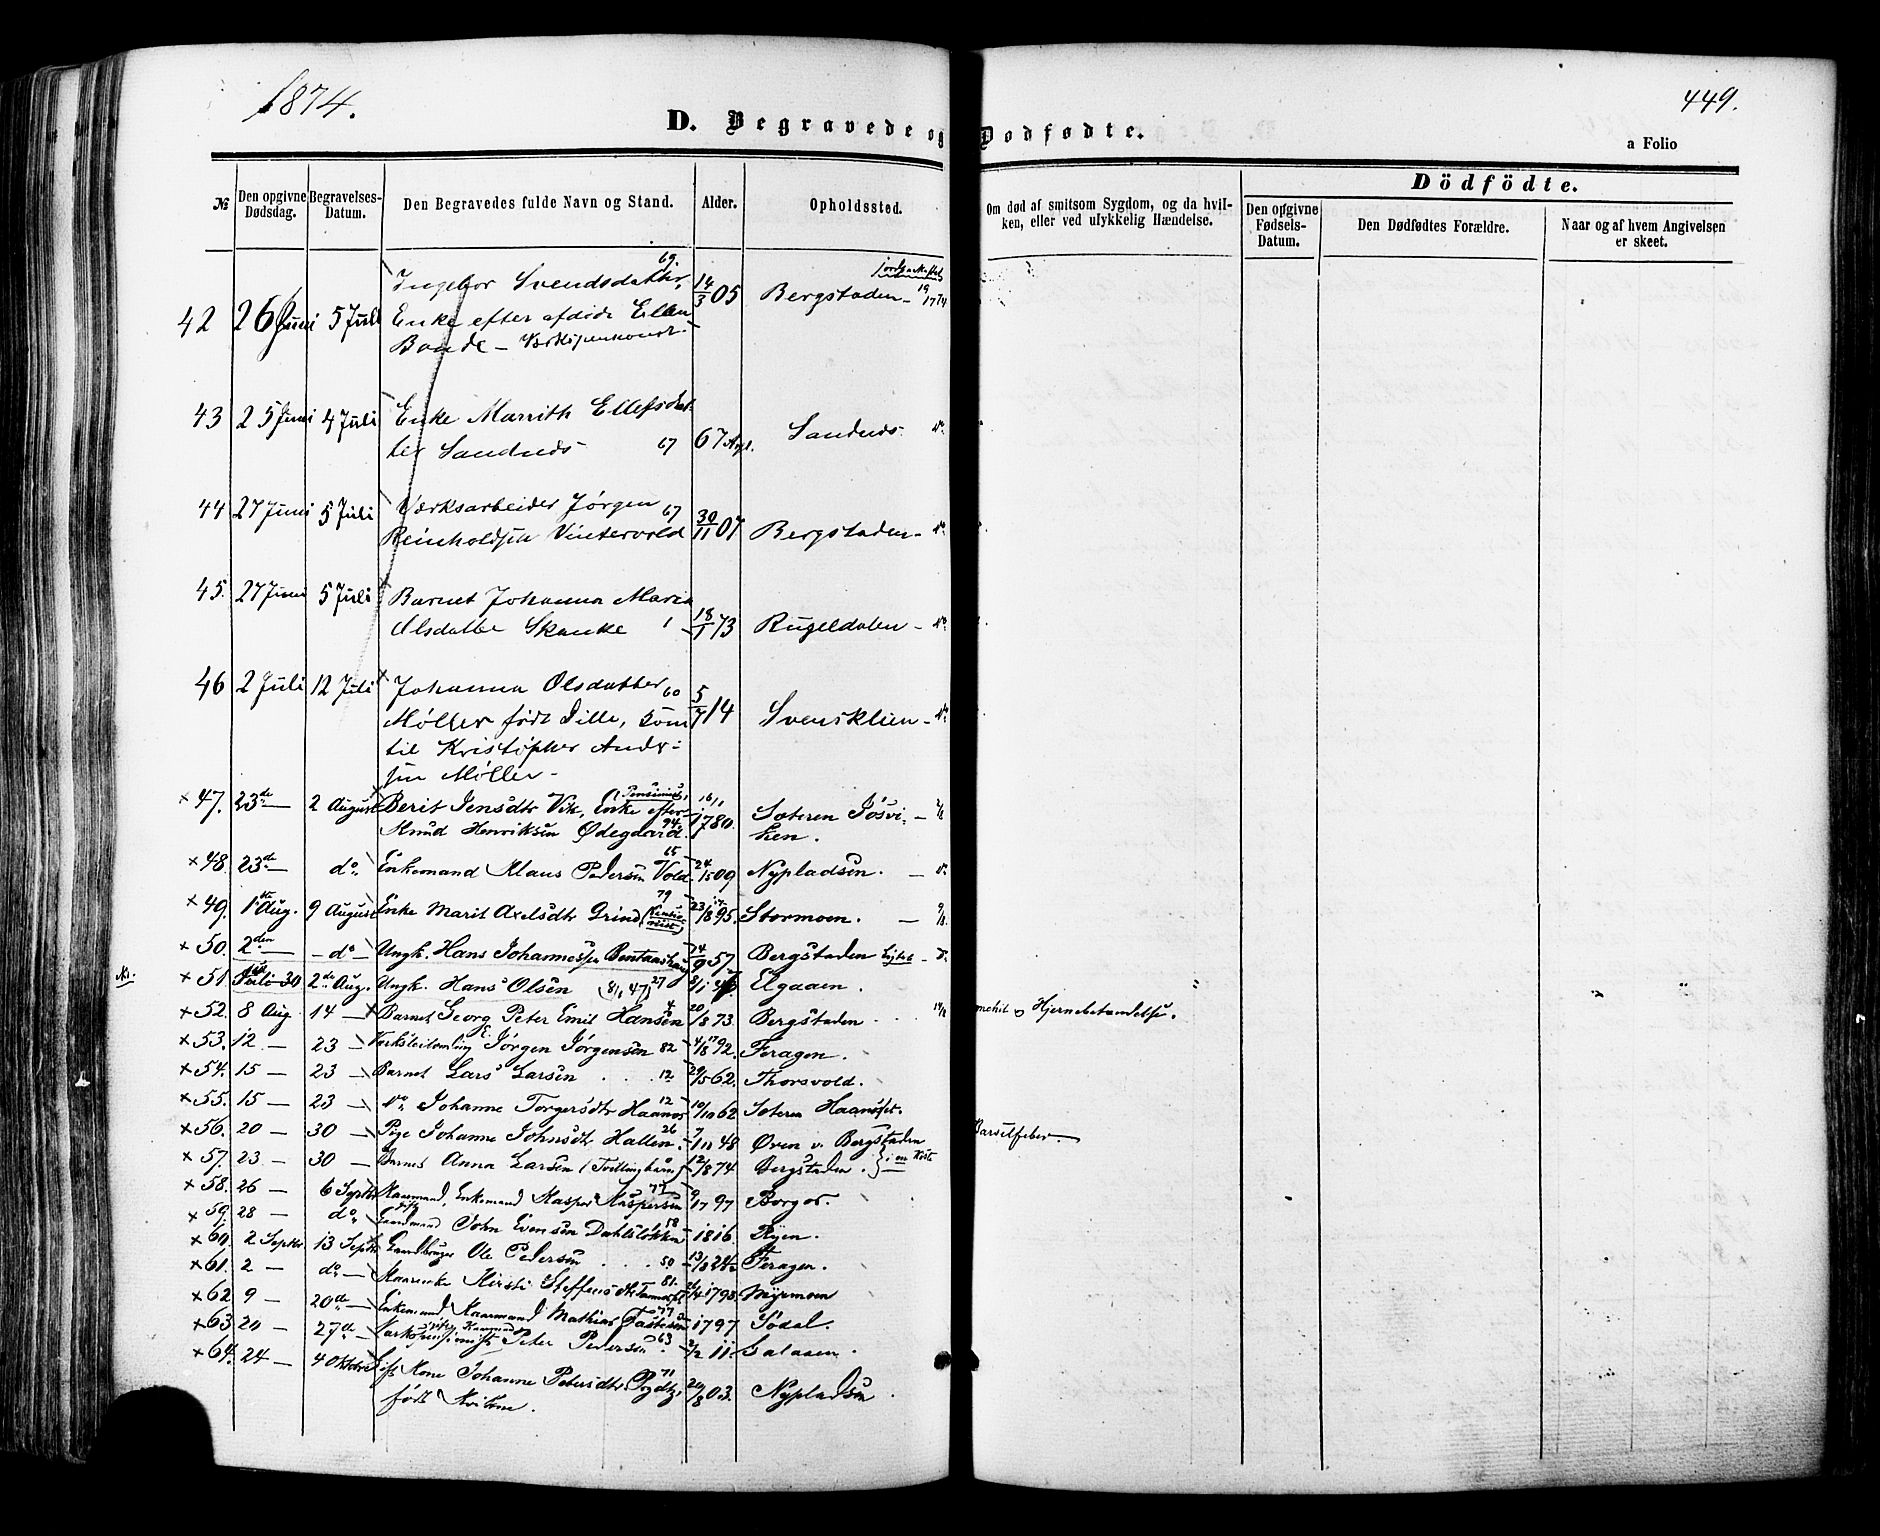 1874.
449.
D. Begravede og Dodfødte.
a Folio
№
Den opgivne Dødsdag.
Begravelses-Datum.
Den Begravedes fulde Navn og Stand.
Alder.
Opholdssted.
Om død af smitsom Sygdom, og da hvilken, eller ved ulykkelig Hændelse.
Dödfödte.
Den opgivne Fødsels-Datum.
Den Dødfødtes Forældre.
Naar og af hvem Angivelsen er skeet.
69.
Ingebor Svendsdatter,
42 26 Juni 5 Juli Enke efter afdøde Ellen 14/3 05 Bergstaden
Bonde
43 25 Juni 4 Juli Enke Marrith Ellefsdat
ter Sandnes 67 67 Aar. Sandnes.
44 27 Juni 5 Juli Værksarbeider Jørgen 67
Reinholdsen Vintervold 30/11 07 Bergstaden
45. 27 Juni 5 Juli Barnet Johanna Maria
Olsdatter Skanke 1 18/1 73 Rugeldalen
46 2 Juli 12 Juli Johanna Olsdatter 60
Møller født Lille, Kone 5/7 14 Svensklien
til Kristopher Andr-
sen Møller
× 47. 23de 2 August Berit Jensdtr Vik, Enke efter 16/1 1780. Sæteren Jøsvi-
Knud Henriksen Ødegaard. 94 ken.
× 48. 23de do Enkemand Klaus Pedersen Vold. 65 24/5 09 Nypladsen.
× 49. 1ste Aug. 9 August Enke Marit Axelsdtr Grind 79 23/8 95. Stormoen.
× 50. 2den do Ungk. Hans Johannessen 14/9 57 Bergstaden
× 51. Juli 30 2de Aug. Ungk. Hans Olsen (8/1 47) 27 Elgaaen.
× 52. 8 Aug 14 Barnet Georg Peter Emil Hansen 4 20/8 73. Bergstaden Hjernebetændelse.
× 53. 12 23 Jørgen Jørgensen 82 4/8 1792. Feragen.
× 54. 15 23 Barnet Lars Larsen 12 29/5 62. Thorsvold.
× 55. 15 23 do Johanne Torgersdtr Haanæs 12 10/10 62 Sæteren
× 56. 20 30 Pige Johanne Johnsdtr Hallen. 26 48 Øren v. Bergstaden Barselfeber
× 57. 23 30 Barnet Anna Larsen (Tvillingbarn) 12/8 74. Bergstaden. i en Kiste
× 58. 26 6 Septbr Kaarmand, Enkemand Kasper Kaspersen 77 9/1 97 Borgos.
× 59. 28 do Gaardmand John Evensen Dahlsløkken 58 1816. Ryen.
× 60. 2 Septbr. 13 Septbr Gaardbruger Ole Pedersen 50 13/8 24 Feragen.
× 61. 2 do Kaarenke Kirsti Steffensdtr 81. 26/4 1793 Myrmoen
× 62 9 20de Enkemand, Kaarmand Mathias 77 1797 Sødal.
× 63 20 27de Peter Pedersen 63 2/2 11. Galaaen.
× 64. 24 4 Oktobr Gift Kone Johanne Petersdtr 71 20/8 03. Nypladsen
født